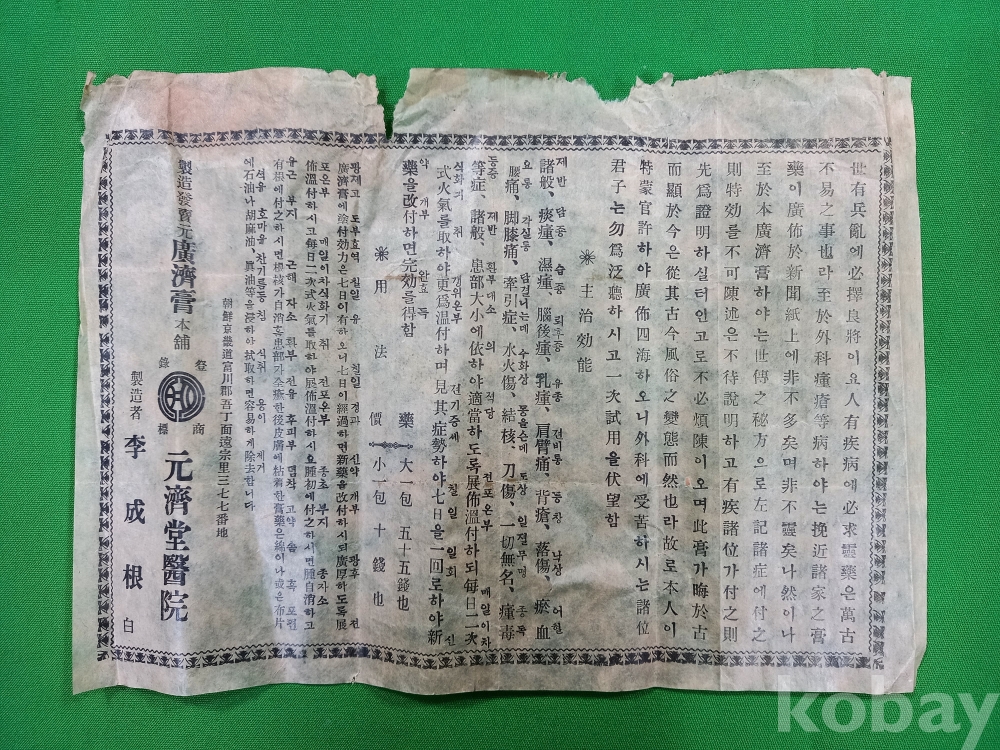 世有兵亂에必擇良將이요人有疾病에必求靈藥은萬古
不易之事也라至於外科瘇瘡等病하야는挽近諸家之膏
藥이廣佈於新聞紙上에非不多矣며非不靈矣나然이나
至於本廣濟膏하야는世傳之秘方으로左記諸症에付之
則特効를不可陳述은不待說明하고有疾諸位가付之則
先爲證明하실터인고로不必煩陳이오며此膏가晦於古
而顯於今은從其古今風俗之變態而然也라故로本人이
特蒙官許하야廣佈四海하오니外科에受苦하시는諸位
君子는勿爲泛聽하시고一次試用을伏望함
主治効能
제반 담종 습종 뇌후종 유종 견비통 등창 낙상 어혈
諸般、痰瘇、濕瘇、腦後瘇、乳瘇、肩臂痛、背瘡、落傷、瘀血
腰痛、脚膝痛、牽引症、水火傷、結核、刀傷、一切無名、瘇毒
等症、諸般、患部大小에依하야適當하도록展佈溫付하되每日二次
式火氣를取하야更爲溫付하며見其症勢하야七日을一回로하야新
藥을改付하면完効를得함
用法
藥價
大一包 五十五錢也
小一包 十錢也
廣濟膏에塗付効力은七日이有하오니七日이經過하면新藥을改付하시되廣厚하도록展
佈溫付하시고每日二次式火氣를取하야展佈溫付하시요瘇初에付之하시면瘇自消하고
有根에付之하시면根核가自消하고患部가全癒한後皮膚에粘着한膏藥은綿이나或은布片
에石油나胡麻油、眞油等을浸하야拭取하면容易하게除去합니다
朝鮮京畿道富川郡吾丁面遠宗里三七七番地
製造發賣元 廣濟膏本舖
登錄商標
元濟堂醫院
製造者 李成根 白
kobay